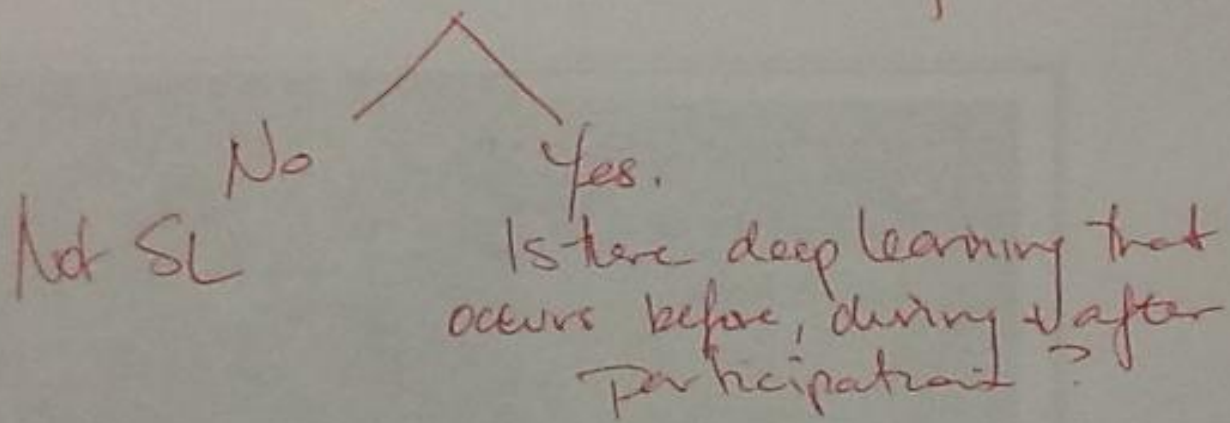 No
Yes.
Not SL
Is there deep learning that
occurs before, during & after
participation?